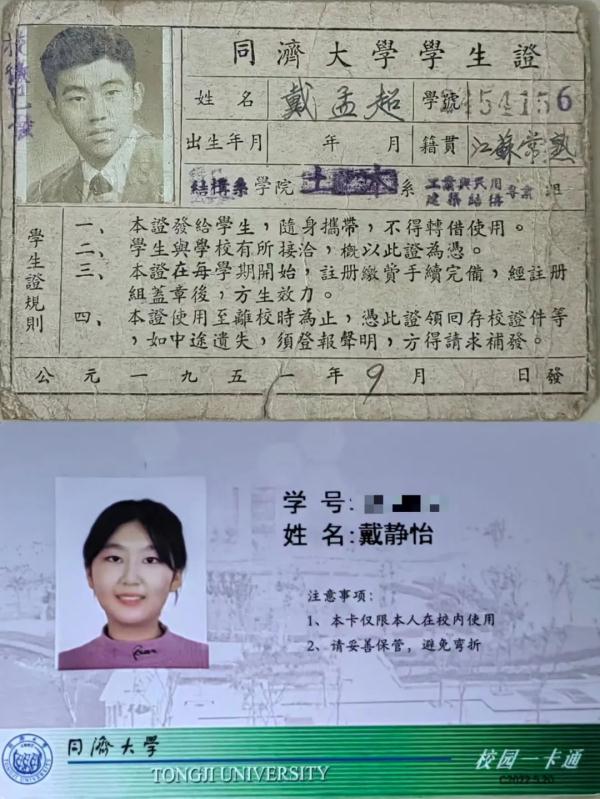 同濟大學學生證
姓名 戴孟超 學號 454156
出生年月 年 月 籍貫 江蘇常熟
結構系 學院 土木 系 工業與民用建築結構專業 組
學生證規則
一、本證發給學生,隨身攜帶,不得轉借使用。
二、學生與學校有所接洽,概以此證為憑。
三、本證在每學期開始,註册繳費手續完備,經註册
組蓋章後,方生效力。
四、本證使用至離校時為止,憑此證領回存校證件等
,如中途遺失,須登報聲明,方得請求補發。
公元一九五一年9月 日發
学 号:
姓 名:戴静怡
注意事项:
1、本卡仅限本人在校内使用
2、请妥善保管,避免弯折
同濟大学
TONGJI UNIVERSITY
校园一卡通
C2022.5.20